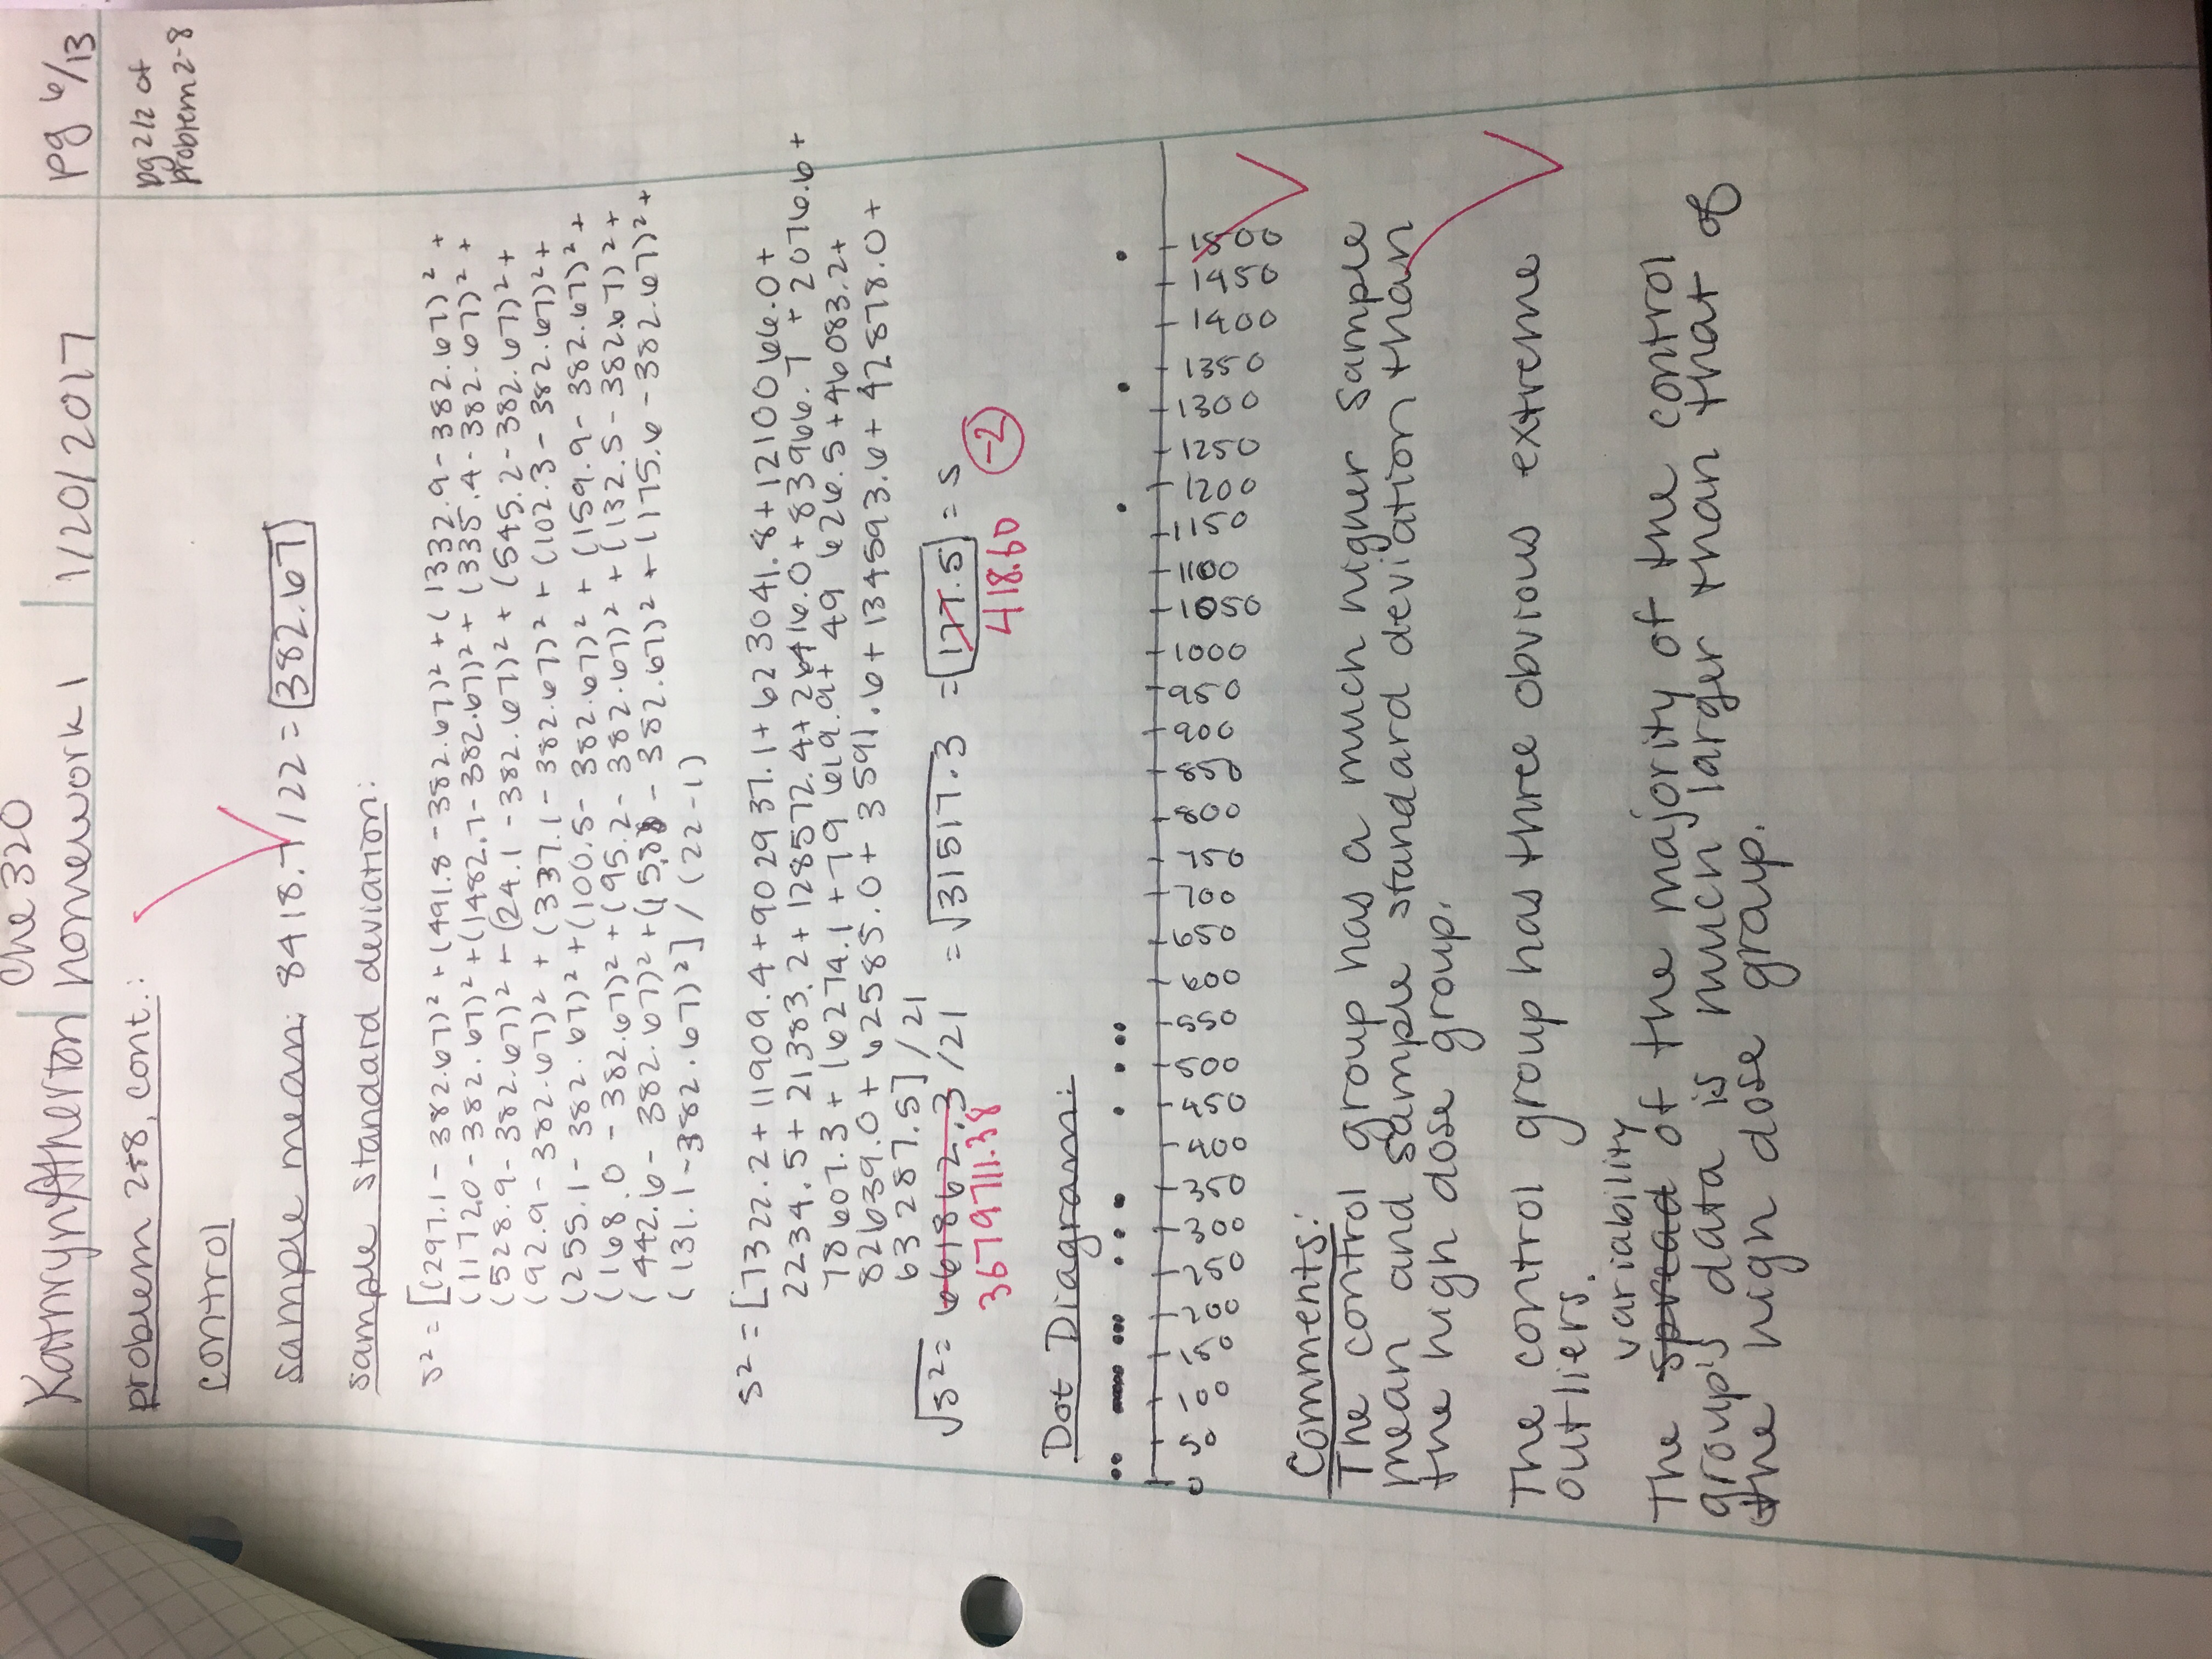 Kathryn Atherton
Che 320
homework 1
1/20/2017
pg 6/13
pg 2/2 of
problem 2-8
problem 2-8, cont.:
control
sample mean: 8418.7/22 = 382.67
sample standard deviation:
s² = [(297.1 - 382.67)² + (491.8 - 382.67)² + (1332.9 - 382.67)² +
(1172.0 - 382.67)² + (1482.7 - 382.67)² + (335.4 - 382.67)² +
(528.9 - 382.67)² + (24.1 - 382.67)² + (545.2 - 382.67)² +
(92.9 - 382.67)² + (337.1 - 382.67)² + (102.3 - 382.67)² +
(255.1 - 382.67)² + (100.5 - 382.67)² + (159.9 - 382.67)² +
(168.0 - 382.67)² + (95.2 - 382.67)² + (132.5 - 382.67)² +
(442.6 - 382.67)² + (15.8 - 382.67)² + (175.6 - 382.67)² +
(131.1 - 382.67)²] / (22-1)
s² = [7322.2 + 11909.4 + 902937.1 + 623041.8 + 1210066.0 +
2234.5 + 21383.2 + 128572.4 + 26416.0 + 83966.7 + 2076.6 +
78607.3 + 16274.1 + 79619.9 + 49626.5 + 46083.2 +
82639.0 + 62585.0 + 3591.6 + 134593.6 + 42878.0 +
63287.5] / 21
√s² = 661862.3 /21 = √31517.3 = 177.5 = s
3679711.38 418.60 -2
Dot Diagram:
0 50 100 150 200 250 300 350 400 450 500 550 600 650 700 750 800 850 900 950 1000 1050 1100 1150 1200 1250 1300 1350 1400 1450 1500
Comments:
The control group has a much higher sample
mean and sample standard deviation than
the high dose group.
The control group has three obvious extreme
outliers.
variability
The spread of the majority of the control
group's data is much larger than that of
the high dose group.